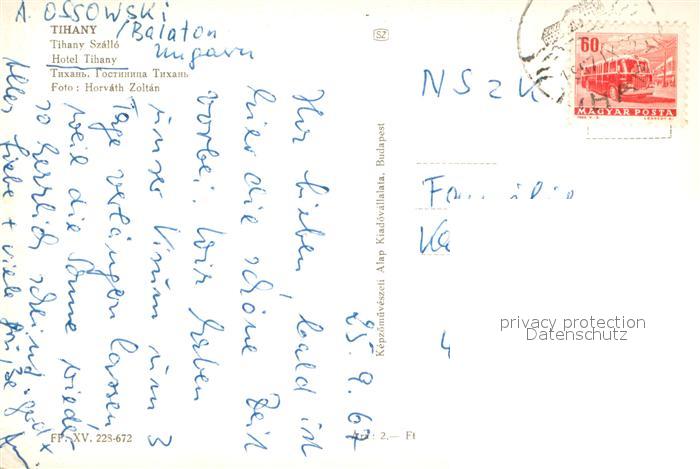 A. OSSOWSKI
TIHANY /Balaton
Tihany Szálló Ungarn
Hotel Tihany
Тихань. Гостиница Тихань
Foto : Horváth Zoltán
SZ
60
MAGYAR POSTA
NSZK
Képzőművészeti Alap Kiadóvállalata, Budapest
25. 9. 67
Ihr Lieben, bald ist
hier die schöne Zeit
vorbei. Wir haben
unser Visum um 3
Tage verlängern lassen
weil die Sonne wieder
so herrlich scheint.
Alles Liebe + viele Grüße
FF. XV. 228-672
Ára : 2.— Ft
privacy protection
Datenschutz